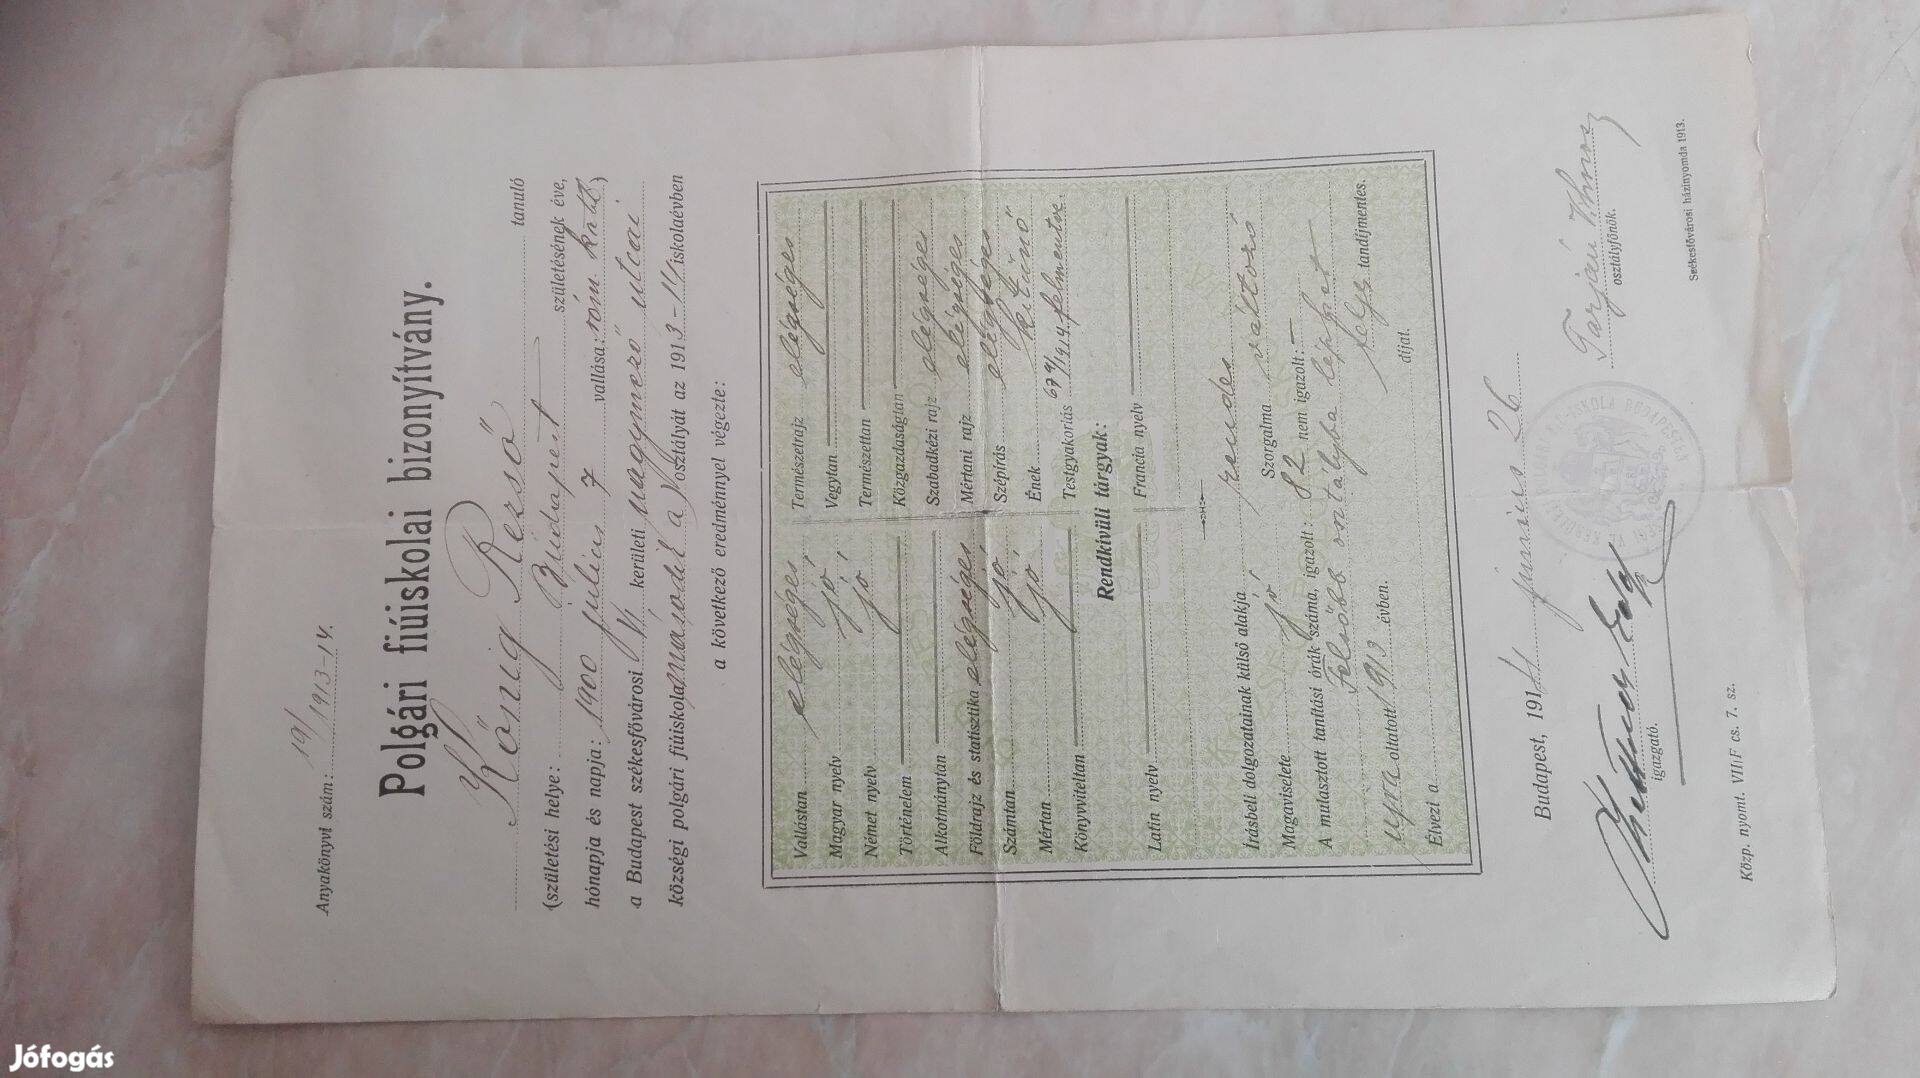 Anyakönyvi szám: 19/1913-14.
Polgári fiúiskolai bizonyítvány.
König Rezső tanuló
(születési helye: Budapest születésének éve,
hónapja és napja: 1900 július 7 vallása: róm. kath)
a Budapest székesfővárosi VI kerületi nagymező utcai
községi polgári fiúiskola második a osztályát az 1913-14 iskolaévben
a következő eredménnyel végezte:
Vallástan elégséges
Magyar nyelv jó
Német nyelv jó
Történelem
Alkotmánytan
Földrajz és statisztika elégséges
Számtan jó
Mértan jó
Könyvviteltan
Természetrajz elégséges
Vegytan
Természettan
Közgazdaságtan
Szabadkézi rajz elégséges
Mértani rajz elégséges
Szépírás elégséges
Ének kitünő
Testgyakorlás 1914. felmentve.
Rendkívüli tárgyak:
Latin nyelv
Francia nyelv
Írásbeli dolgozatainak külső alakja rendes
Magaviselete jó Szorgalma változó
A mulasztott tanítási órák száma, igazolt: 82 nem igazolt: —
Felsőbb osztályba léphet
ujra oltatott 1913 évben. tandíjmentes.
Élvezi a díjat.
Budapest, 1914 junius 26
igazgató.
Tarján osztályfőnök.
Közp. nyomt. VII/F cs. 7. sz.
Székesfővárosi házinyomda 1913.
Jófogás